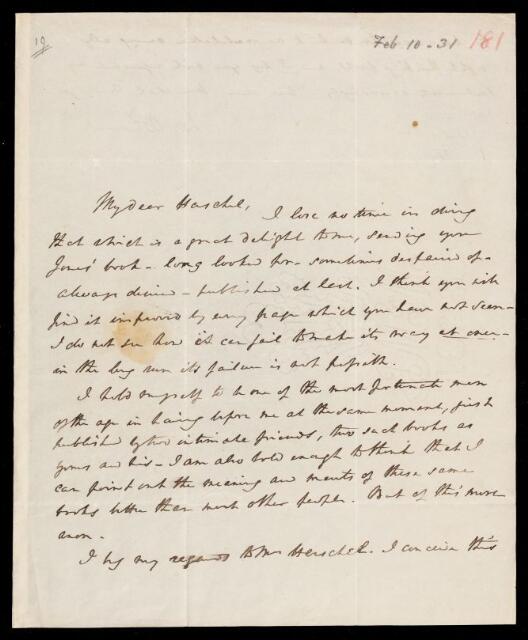 19
Feb 10 - 31 181
My dear Herschel, I lose no time in doing
that which is a great delight to me, sending you
Jones' book - long looked for - sometimes despaired of -
always desired - published at last. I think you will
find it improved by every page which you have not seen -
I do not see how it can fail to make its way at once -
in the long run its failure is not possible.
I hold myself to be one of the most fortunate men
of the age in having before me at the same moment, just
published by two intimate friends, two such books as
yours and his - I am also bold enough to think that I
can point out the meaning and merits of these same
books better than most other people. But of this more
anon.
I beg my regards to Mrs Herschel. I conceive this